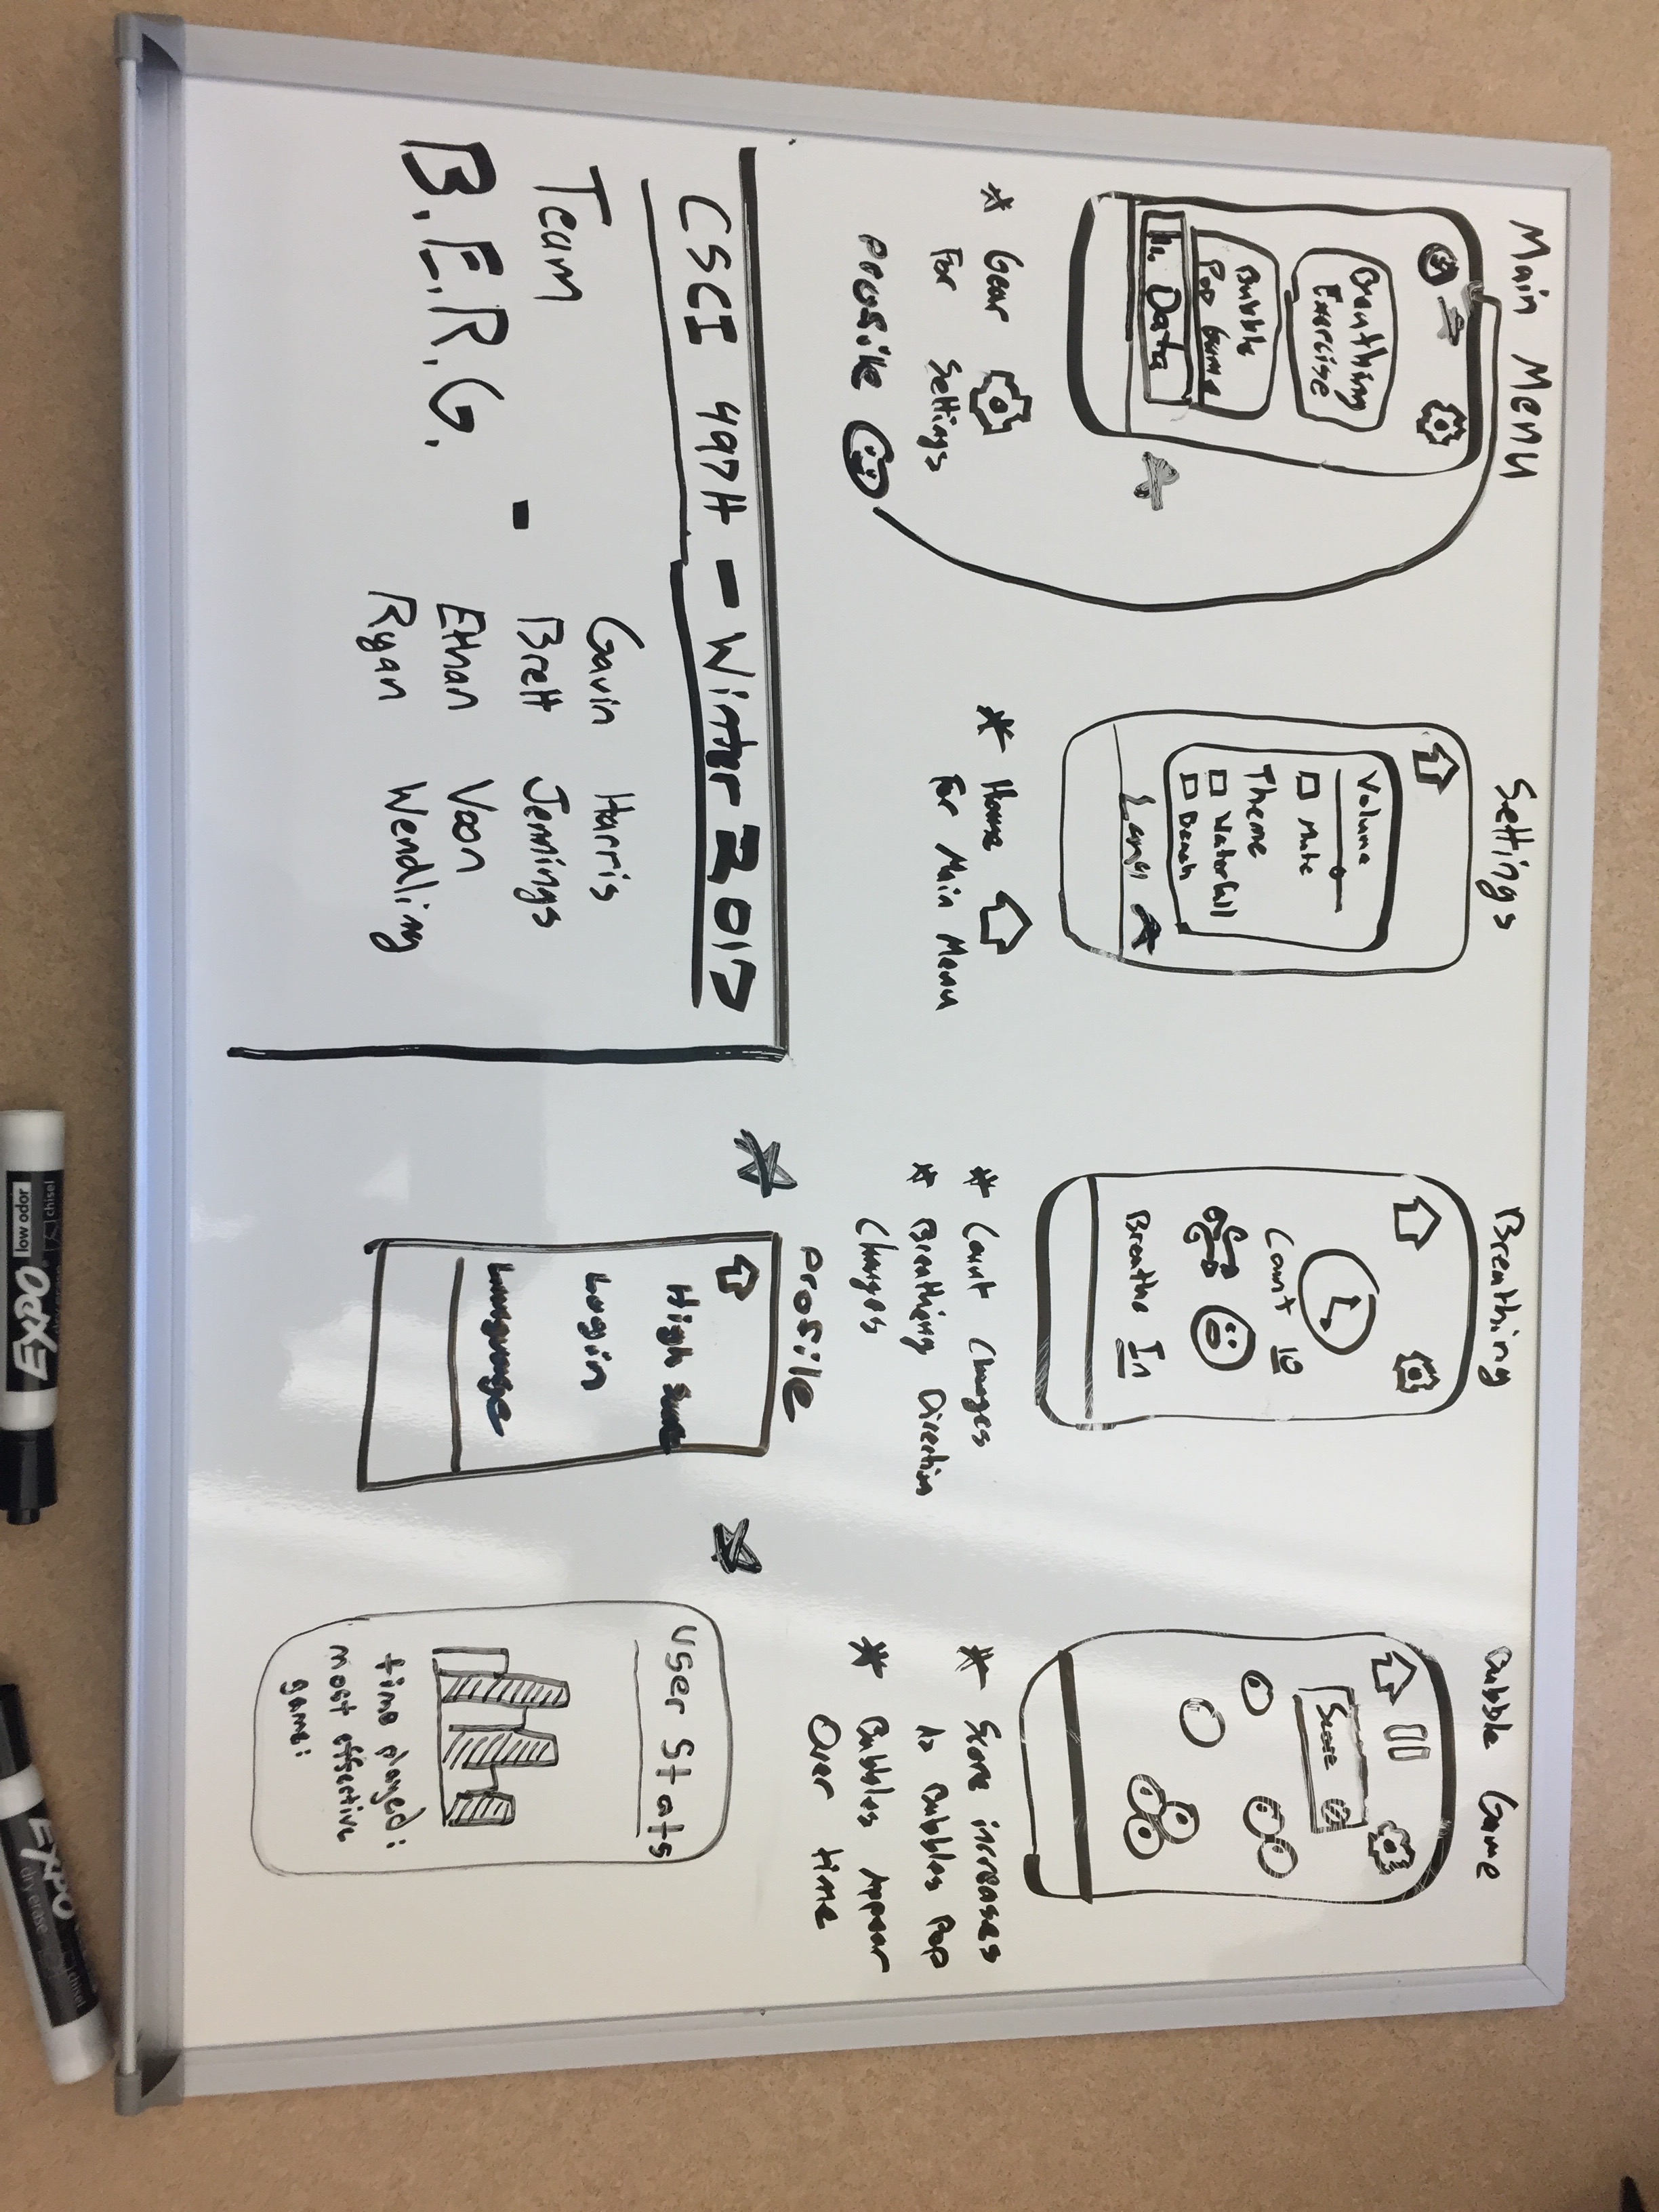 Main Menu
Breathing
Exercise
Bubble
Pop Game
Data
* Gear
For Settings
Profile
Settings
Volume
Mute
Theme
Waterfall
Beach
Lang
* Home
For Main Menu
Breathing
Count 10
Breathe In
* Count Changes
* Breathing Direction
Changes
Bubble Game
Score
* Score increases
As Bubbles Pop
* Bubbles Appear
Over time
CSCI 497H - Winter 2017
Team
B.E.R.G. -
Gavin Harris
Brett Jennings
Ethan Voon
Ryan Wendling
Profile
High Score
Login
Language
User Stats
time played:
most effective
game:
chisel
low odor
EXPO
EXPO
dry erase
chisel